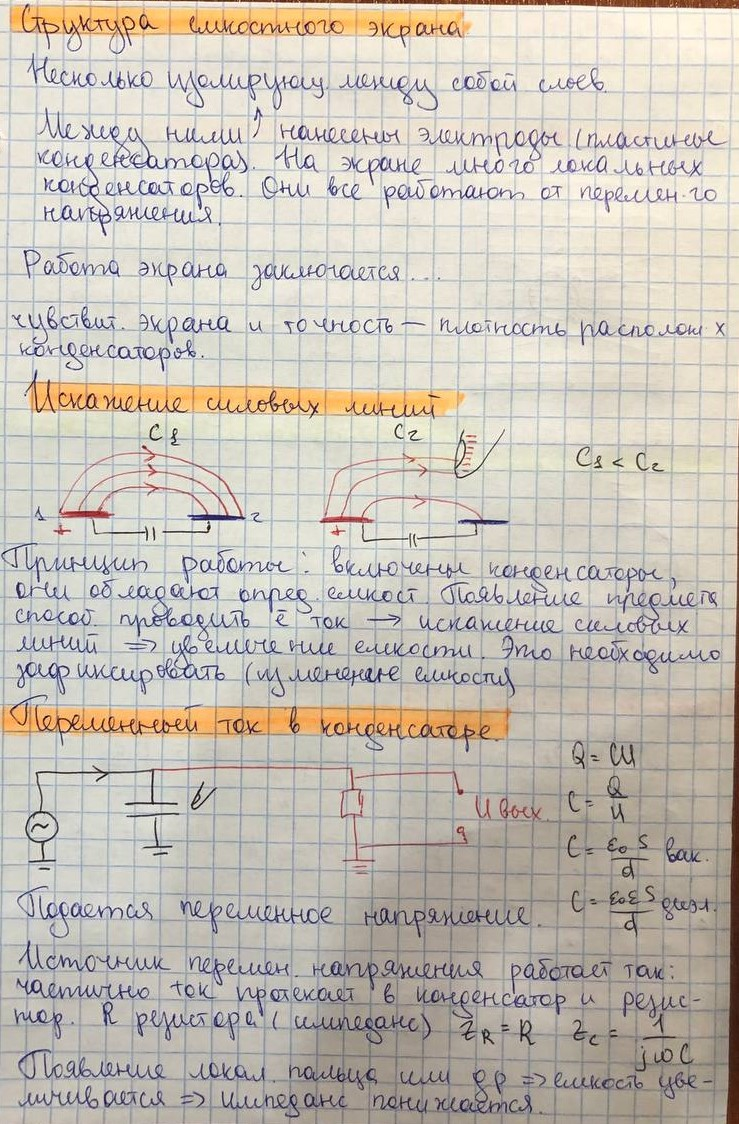 Структура емкостного экрана
Несколько изолирующ. между собой слоев.
Между ними ↑ нанесены электроды (пластины
конденсатора). На экране много локальных
конденсаторов. Они все работают от перемен-го
напряжения.
Работа экрана заключается...
чувствит. экрана и точность — плотность располож х
конденсаторов.
Искажение силовых линий
C1
C2
C1 < C2
1
2
+
+
Принцип работы: включены конденсаторы,
они обладают опред. емкост Появление предмета
способ. проводить ē ток → искажение силовых
линий => увеличение емкости. Это необходимо
зафиксировать (изменение емкости)
Переменный ток в конденсаторе.
Q = CU
U вых.
C = Q/U
C = ε₀ S/d вак.
C = ε₀ε S/d диэл.
Подается переменное напряжение.
Источник перемен. напряжения работает так:
частично ток протекает в конденсатор и резис-
тор. R резистора (импеданс) Z_R = R Z_c = 1/jωC
Появление локал. пальца или др => емкость уве-
личивается => импеданс понижается.